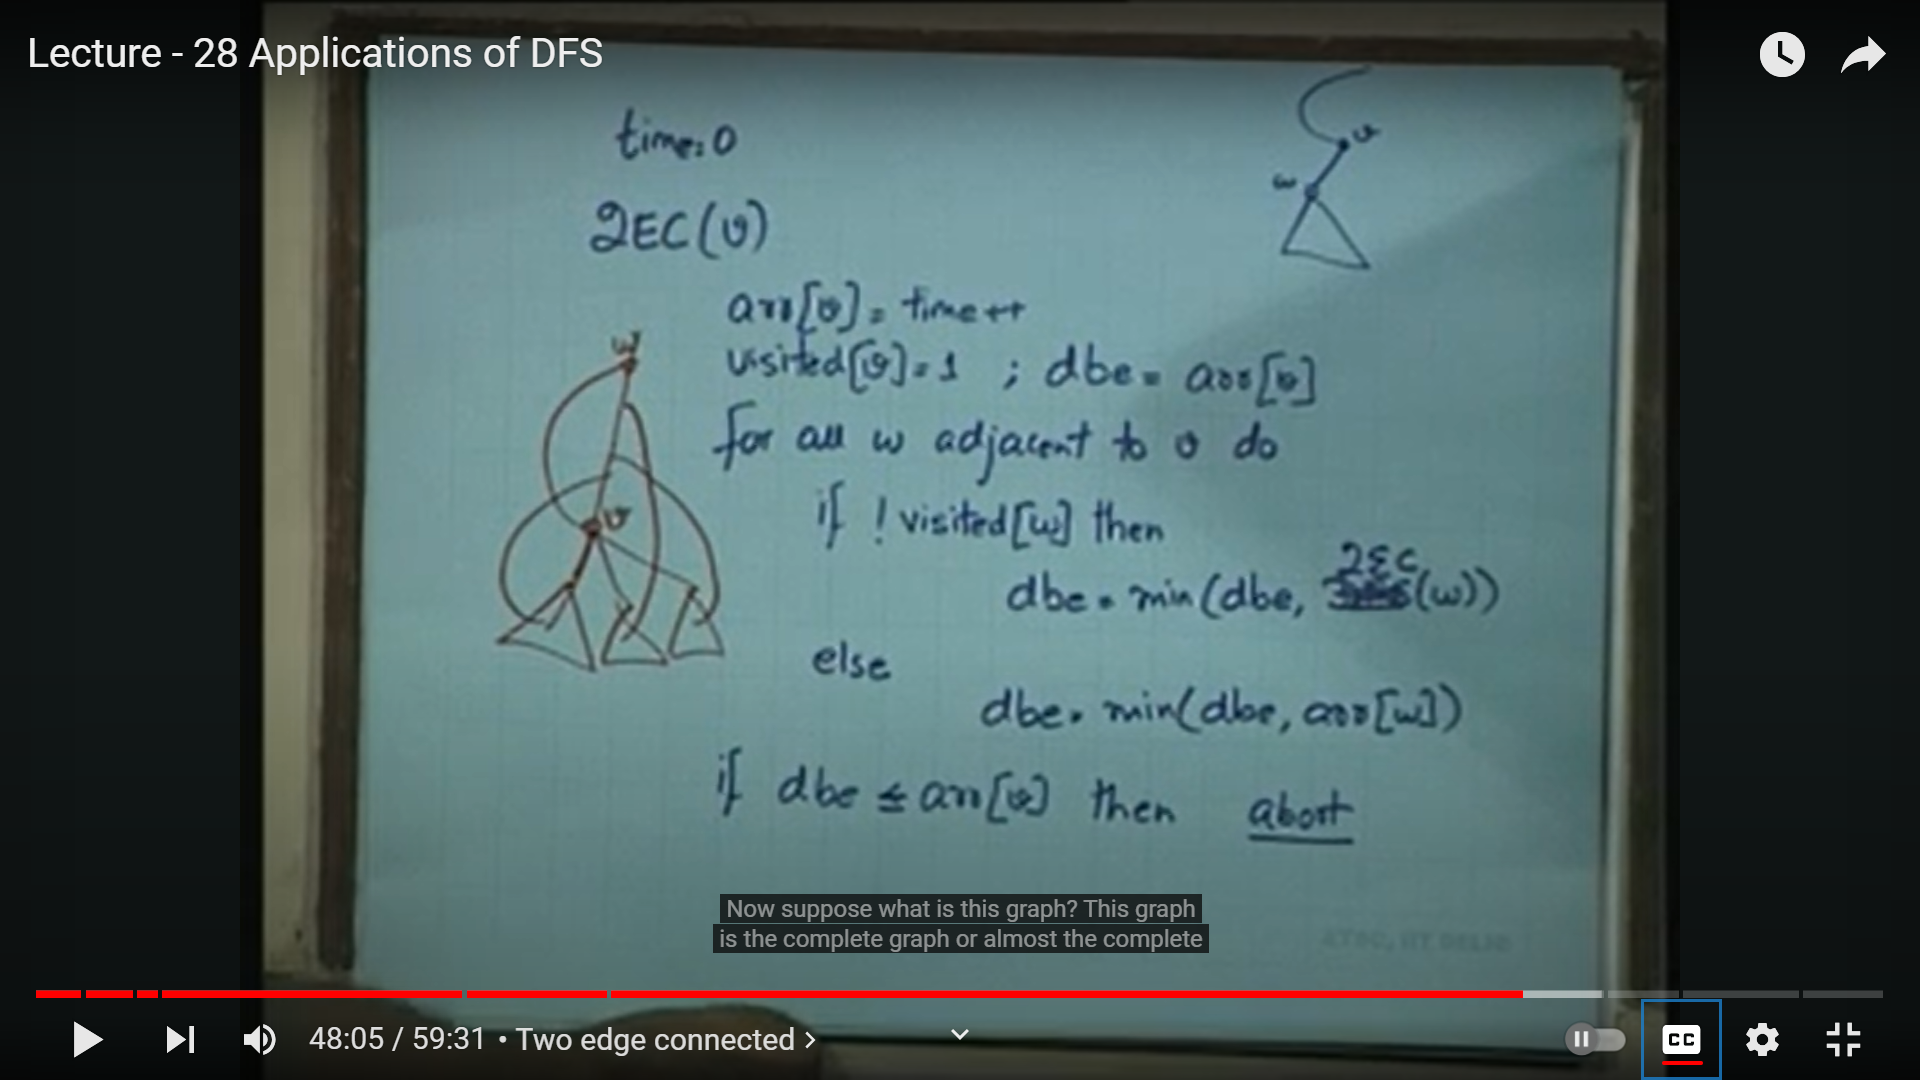 Lecture - 28 Applications of DFS
time=0
2EC(v)
v
w
arr[v] = time++
visited[v]=1 ; dbe = arr[v]
w
for all w adjacent to v do
if !visited[w] then
v
dbe = min(dbe, 2EC(w))
else
dbe = min(dbe, arr[w])
if dbe ≤ arr[v] then abort
Now suppose what is this graph? This graph
is the complete graph or almost the complete
48:05 / 59:31 • Two edge connected >
CC